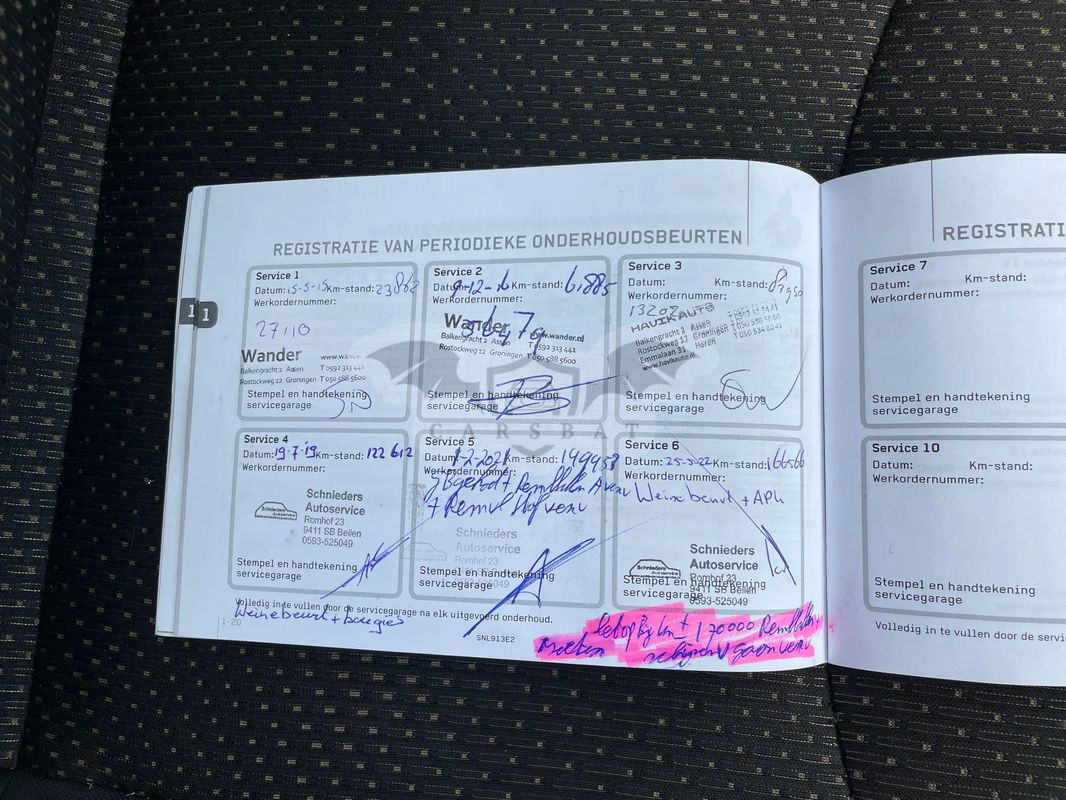 REGISTRATIE VAN PERIODIEKE ONDERHOUDSBEURTEN
Service 1
Datum: 15-5-15 Km-stand: 23862
Werkordernummer:
27110
Wander www.wander
Balkengracht 2 Assen T 0592 313 441
Rostockweg 12 Groningen T 050 588 5600
Stempel en handtekening
servicegarage
Service 2
Datum: 9-12-16 Km-stand: 61.885
Werkordernummer:
Wander www.wander.nl
Balkengracht 2 Assen T 0592 313 441
Rostockweg 12 Groningen T 050 588 5600
Stempel en handtekening
servicegarage
Service 3
Datum: Km-stand:
Werkordernummer:
HAVIKAUTO
Balkengracht 2 Assen
Rostockweg 12 Groningen T 050 588 56 00
Emmalaan 31 Haren
www.havikauto.nl
Stempel en handtekening
servicegarage
CARSBAT
Service 4
Datum: 19-7-19 Km-stand: 122612
Werkordernummer:
Schnieders
Autoservice
Romhof 23
9411 SB Beilen
0593-525049
Stempel en handtekening
servicegarage
Service 5
Datum: 1-2-2021 Km-stand: 149958
Werkordernummer:
Schnieders
Autoservice
Romhof 23
Stempel en handtekening
servicegarage
Service 6
Datum: 25-5-22 Km-stand: 166566
Werkordernummer:
Kleine beurt + APK
Schnieders
Autoservice
Romhof 23
9411 SB Beilen
0593-525049
Stempel en handtekening
servicegarage
Volledig in te vullen door de servicegarage na elk uitgevoerd onderhoud.
Kleine beurt + bougies
1-20
SNL913E2
170000
11
REGISTRATI
Service 7
Datum: Km-stand:
Werkordernummer:
Stempel en handtekening
servicegarage
Service 10
Datum: Km-stand:
Werkordernummer:
Stempel en handtekening
servicegarage
Volledig in te vullen door de servi